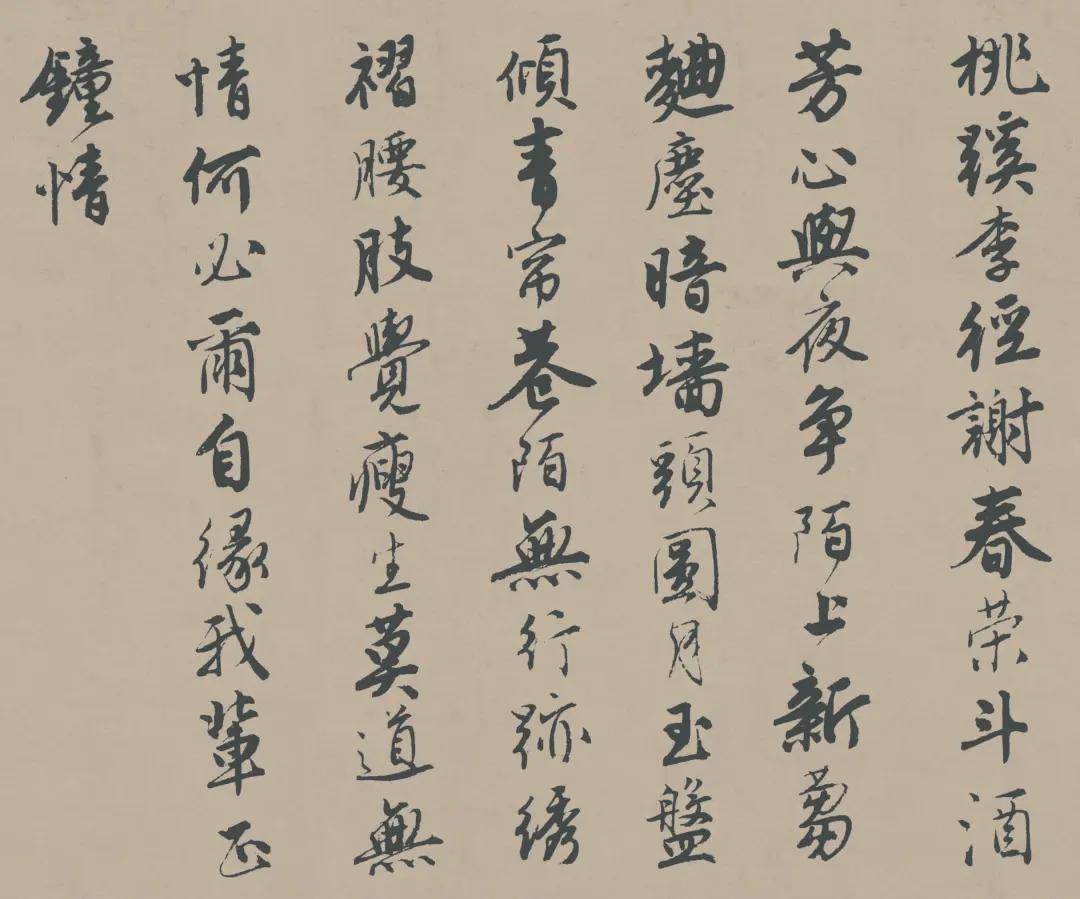 桃蹊李徑謝春荣斗酒
芳心與夜争陌上新蒭
麯塵暗墙頭圓月玉盤
傾青帘巷陌無行跡綉
褶腰肢覺瘦生莫道無
情何必爾自緣我輩正
鐘情